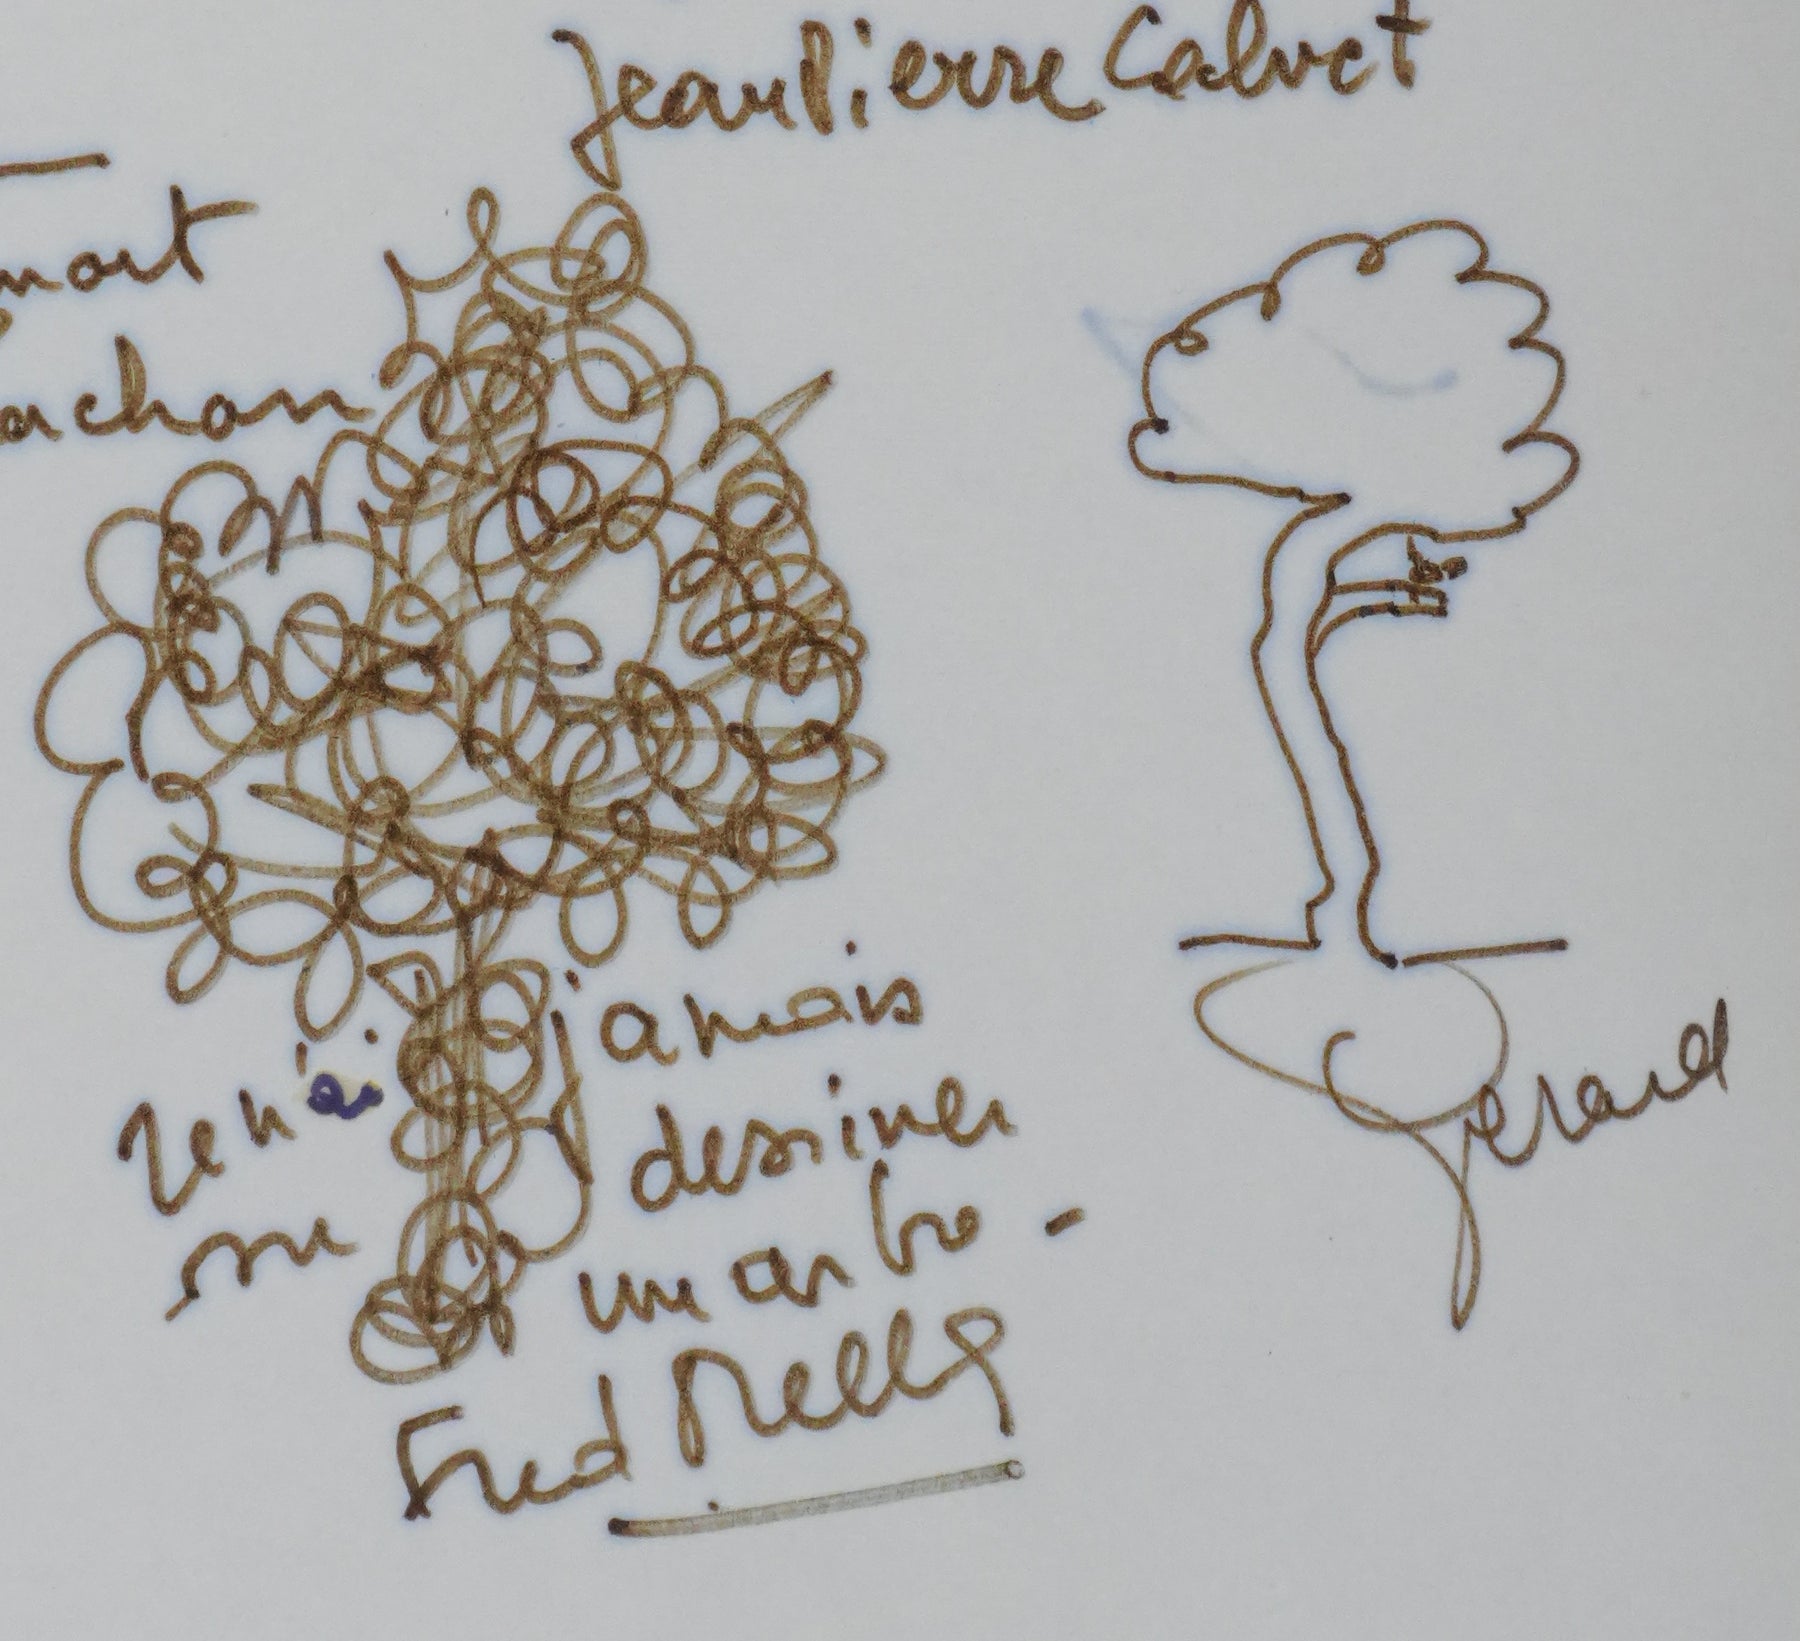 Jean Pierre Calvet
mort
achan
je n'ai jamais
su dessiner
un arbre -
Fred Mella
Gérard